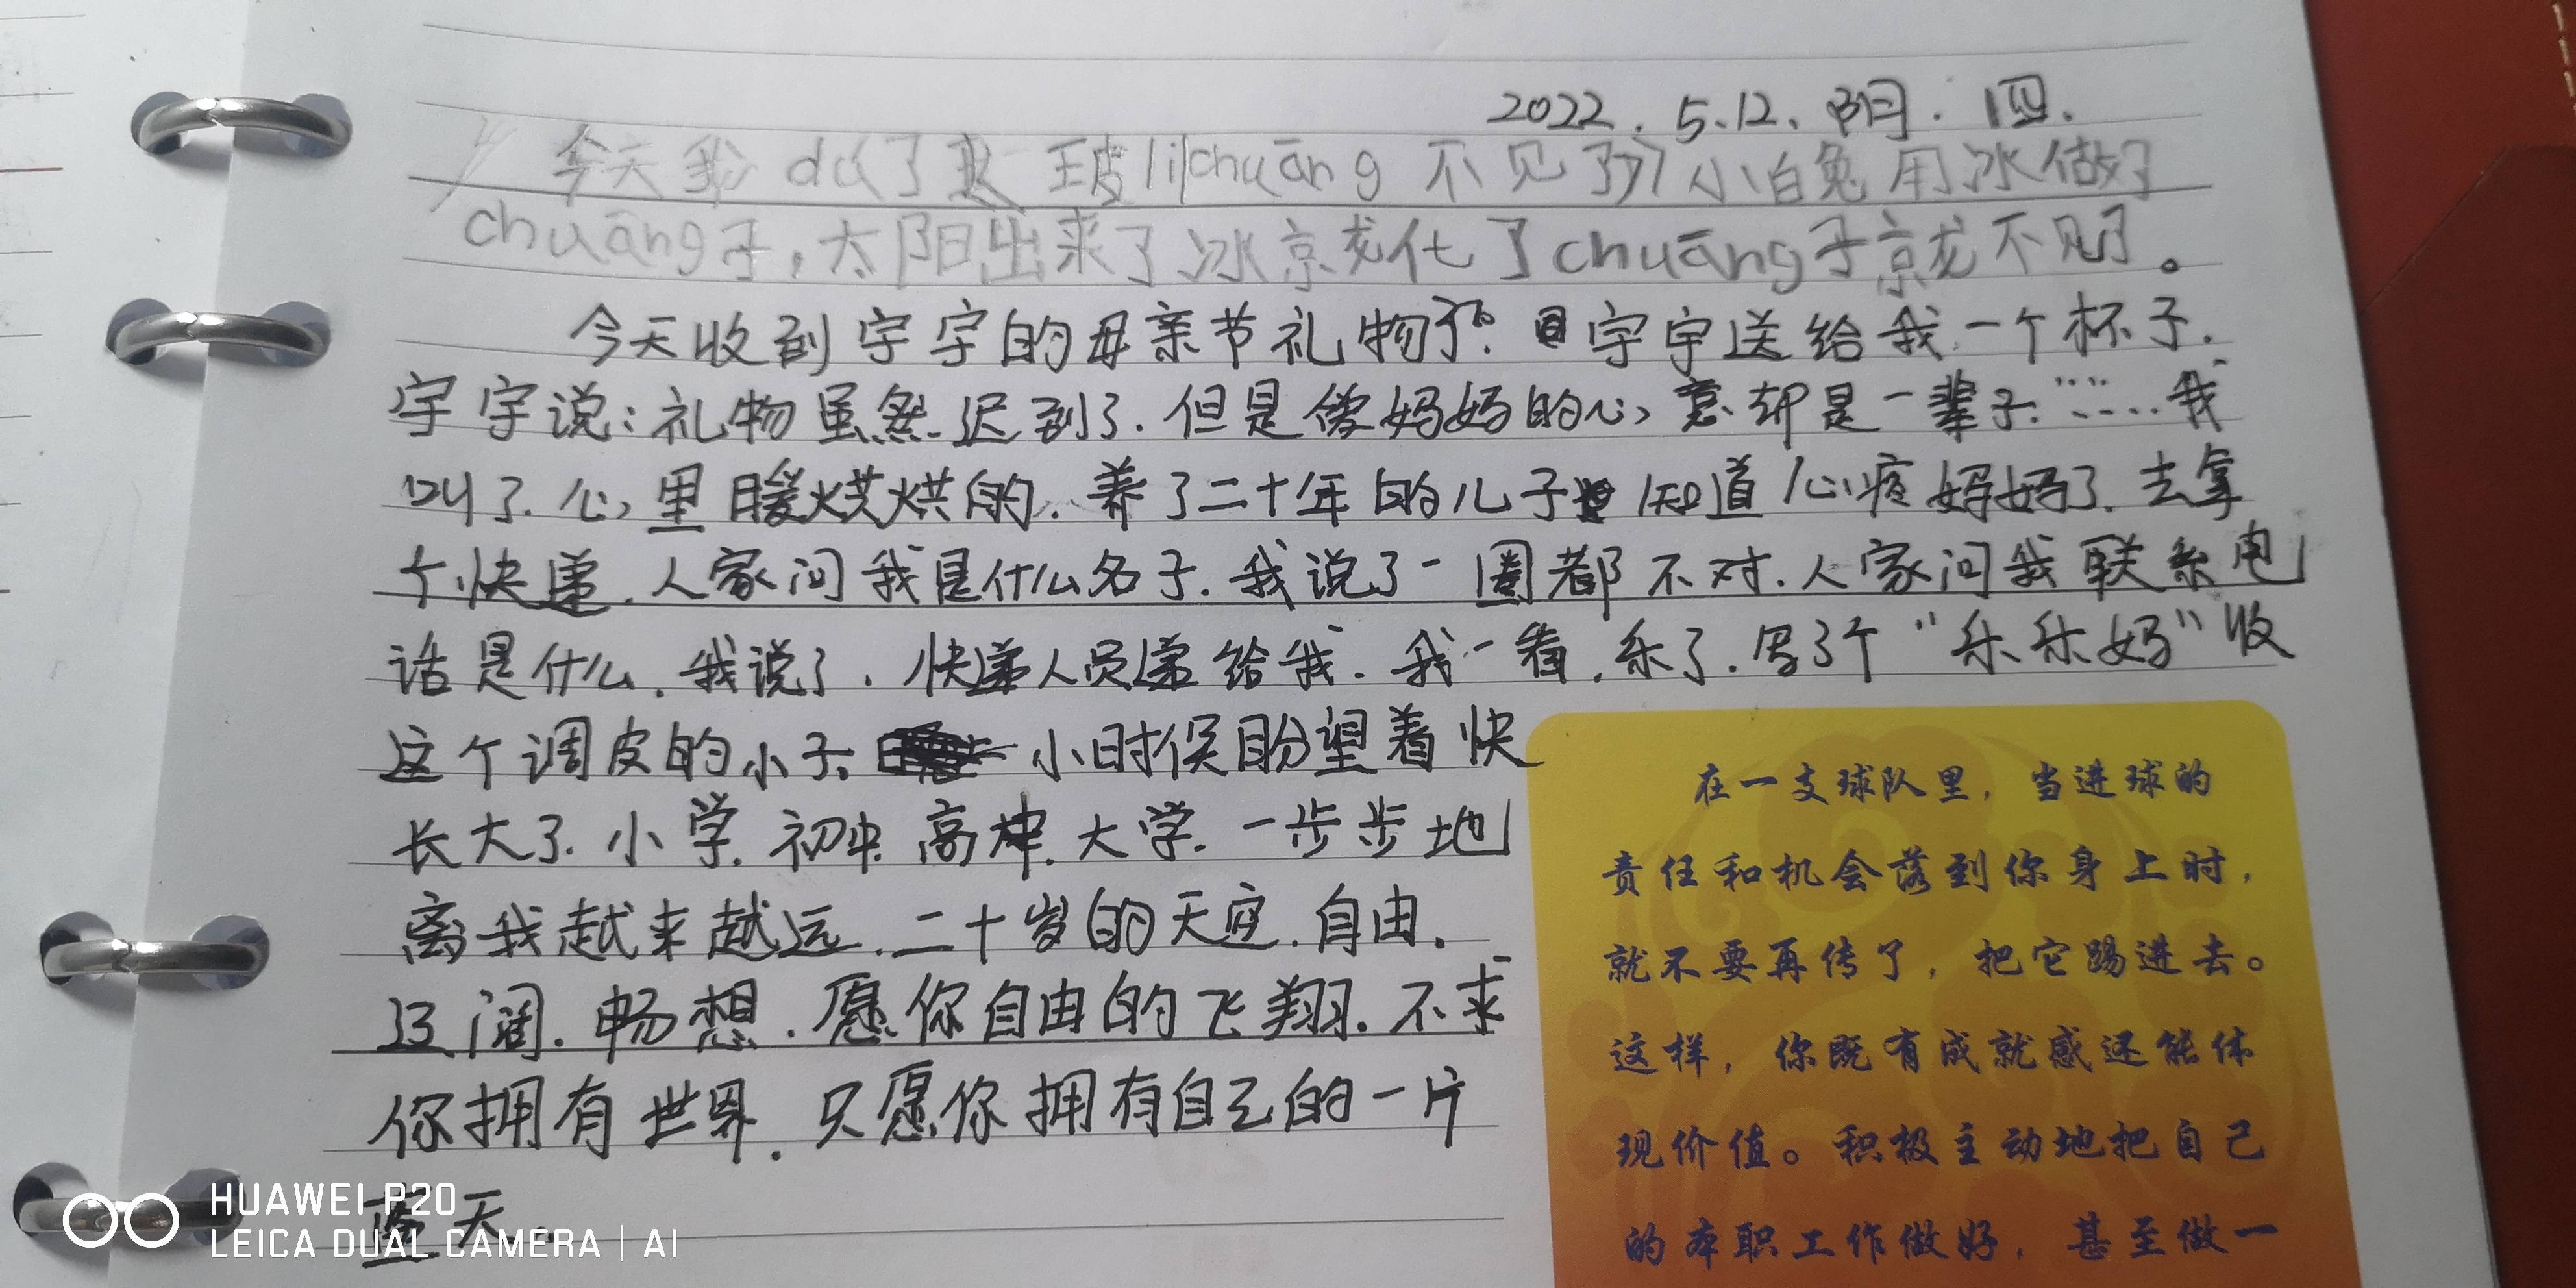 2022.5.12、阴.四.
今天我du了 玻li chuāng 不见了 小白兔用冰做了
chuāng子,太阳出来了冰京尤化了chuāng子京尤不见了。
今天收到宇宇的母亲节礼物了.宇宇送给我一个杯子.
宇宇说:礼物虽然迟到了.但是像妈妈的心,意却是一辈子……我
叫了.心里暖烘烘的.养了二十年的儿子知道心疼妈妈了.去拿
个快递.人家问我是什么名子.我说了一圈都不对.人家问我联系电
话是什么.我说了.快递人员递给我.我一看.乐了.写了个“乐乐妈”收
这个调皮的小子 小时侯盼望着快
长大了.小学.初中.高中.大学.一步步地
离我越来越远.二十岁的天空.自由.
辽阔.畅想.愿你自由的飞翔.不求
你拥有世界.只愿你拥有自己的一片
蓝天.
在一支球队里,当进球的
责任和机会落到你身上时,
就不要再传了,把它踢进去。
这样,你既有成就感还能体
现价值。积极主动地把自己
的本职工作做好,甚至做一
HUAWEI P20
LEICA DUAL CAMERA | AI